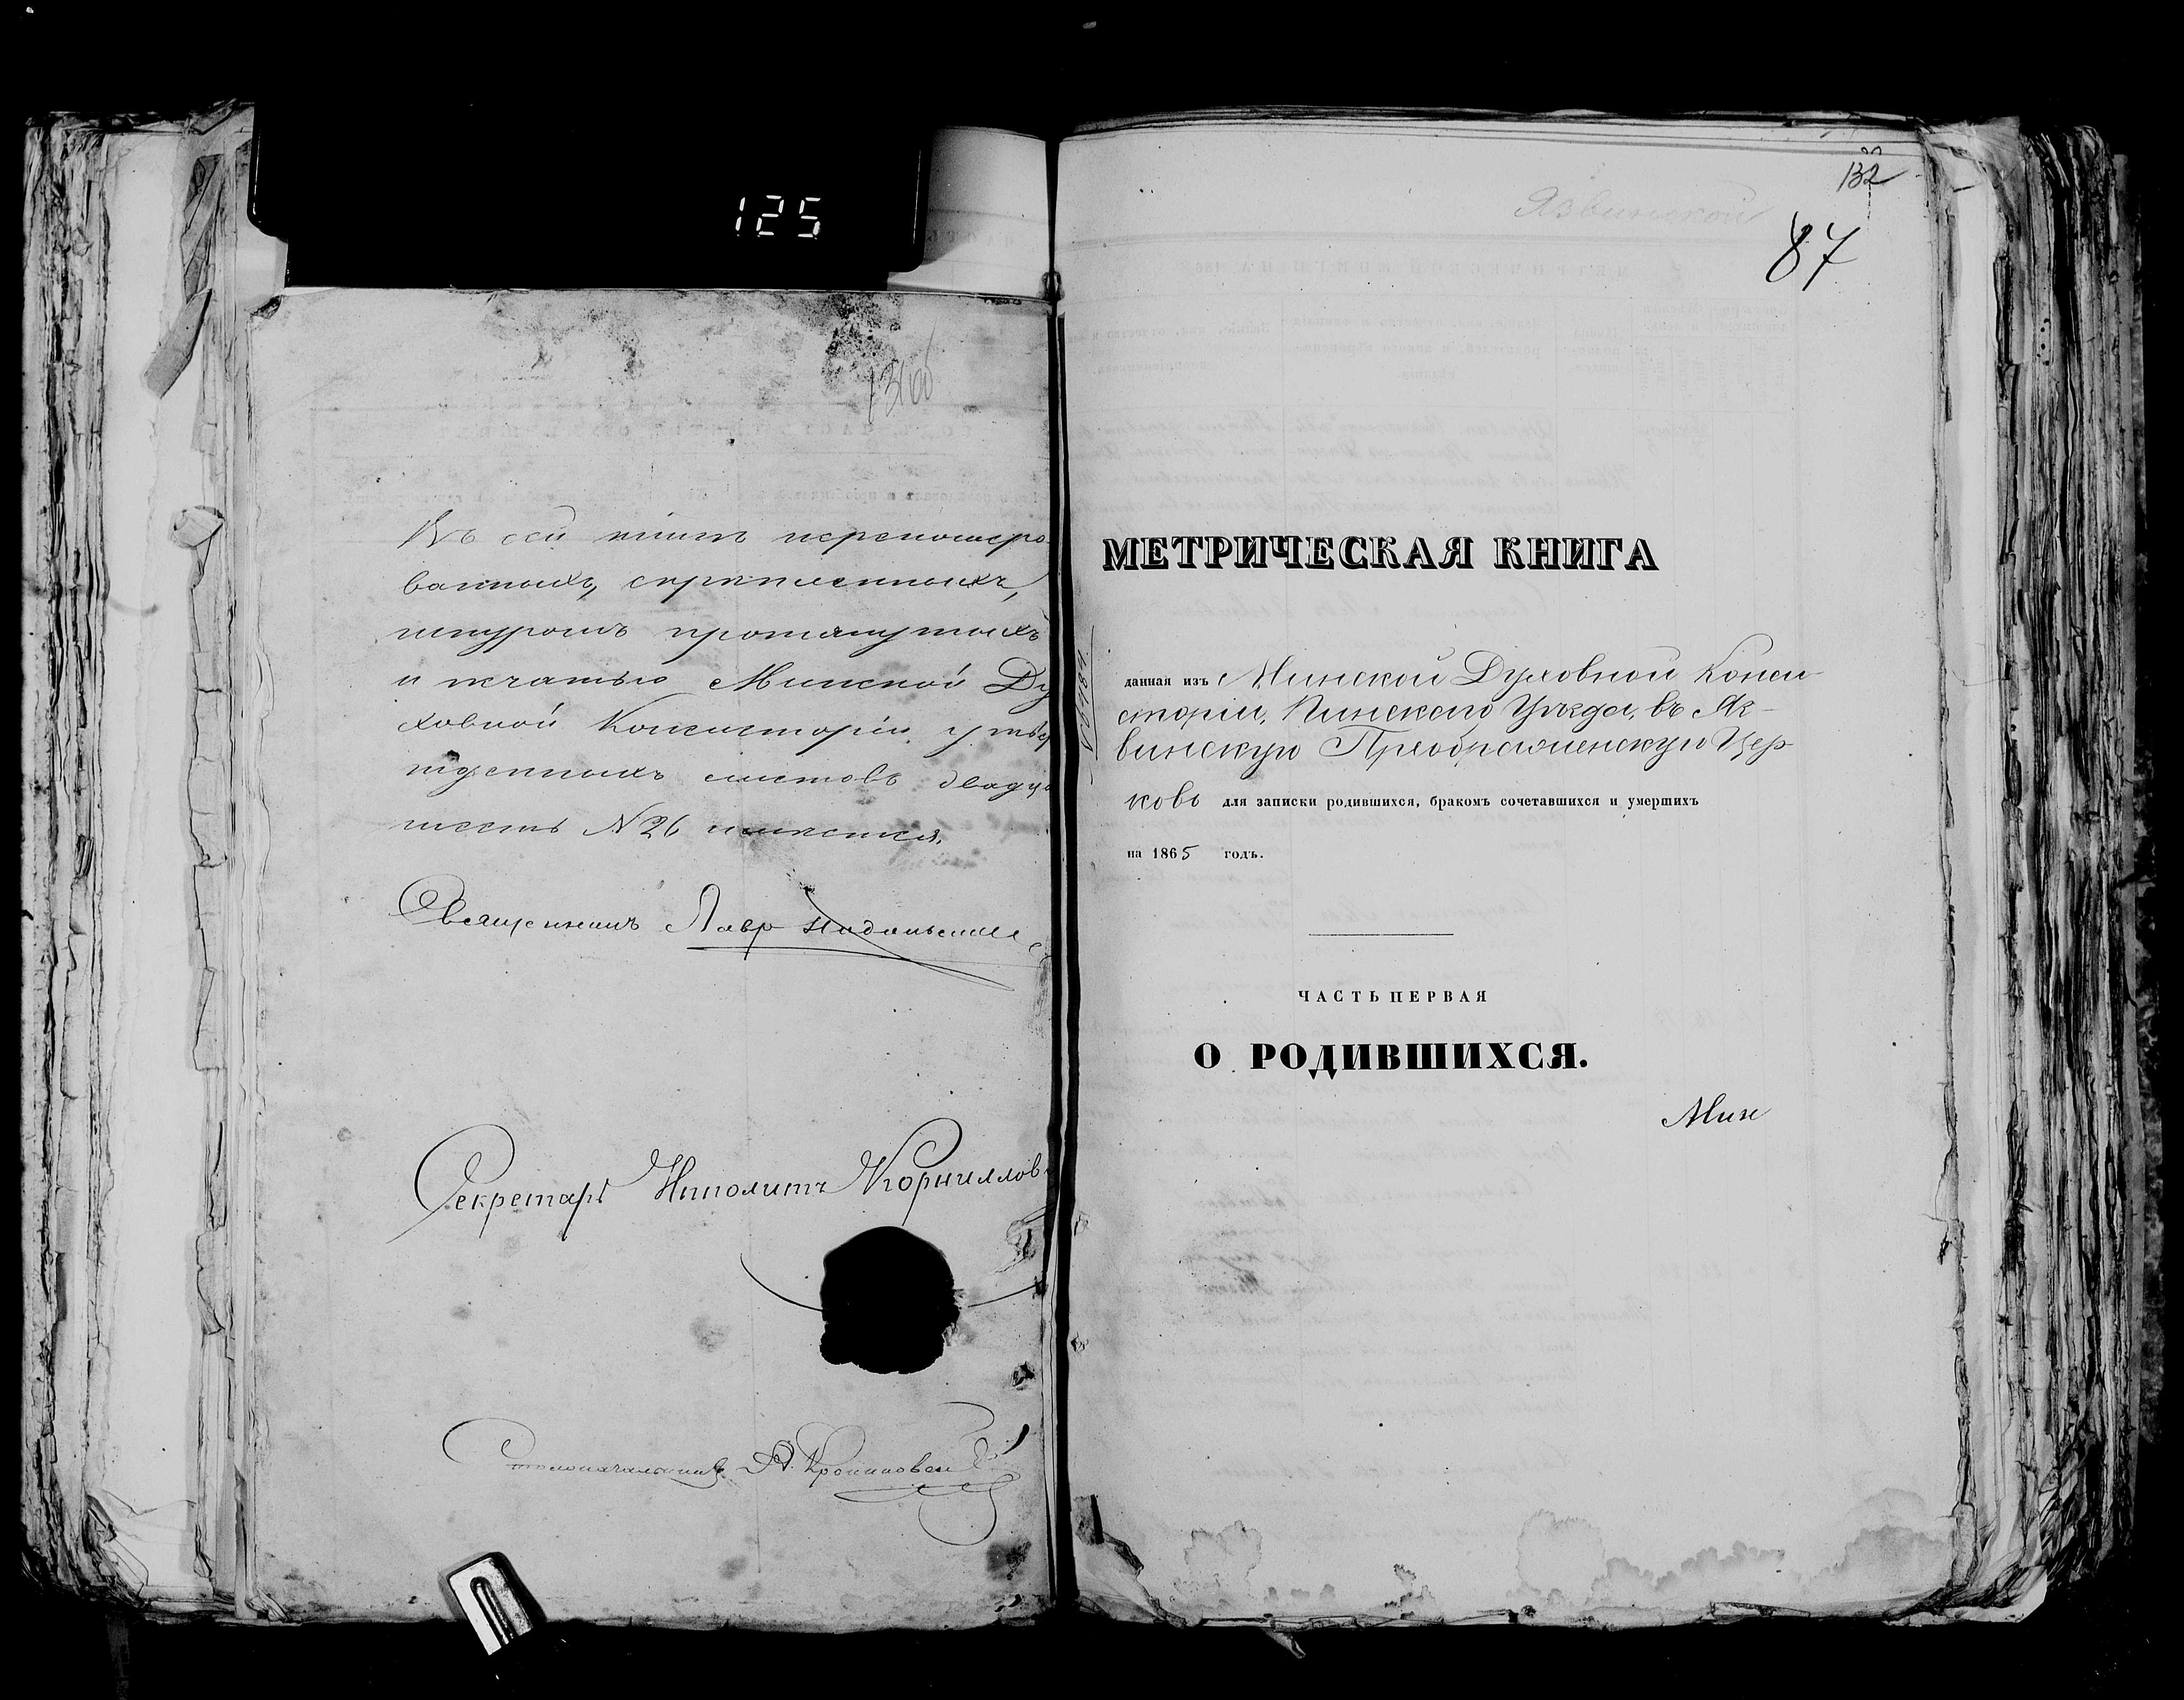 125
Въ сей книгѣ перенумеро
ванныхъ, скрѣпленныхъ,
шнуромъ протянутыхъ
и печатью Минской Ду
ховной Консисторіи утвер
жденныхъ листовъ двадца
шесть № 26 имѣется.
Священникъ Лавр
Секретарь Ипполитъ Корниллов
Столоначальникъ
132
Язвинской
87
МЕТРИЧЕСКАЯ КНИГА
данная изъ Минской Духовной Конси
сторіи, Пинскаго Уѣзда, въ Яз-
винскую Преображенскую Цер
ковь для записки родившихся, бракомъ сочетавшихся и умершихъ
на 1865 годъ.
ЧАСТЬ ПЕРВАЯ
О РОДИВШИХСЯ.
Мин